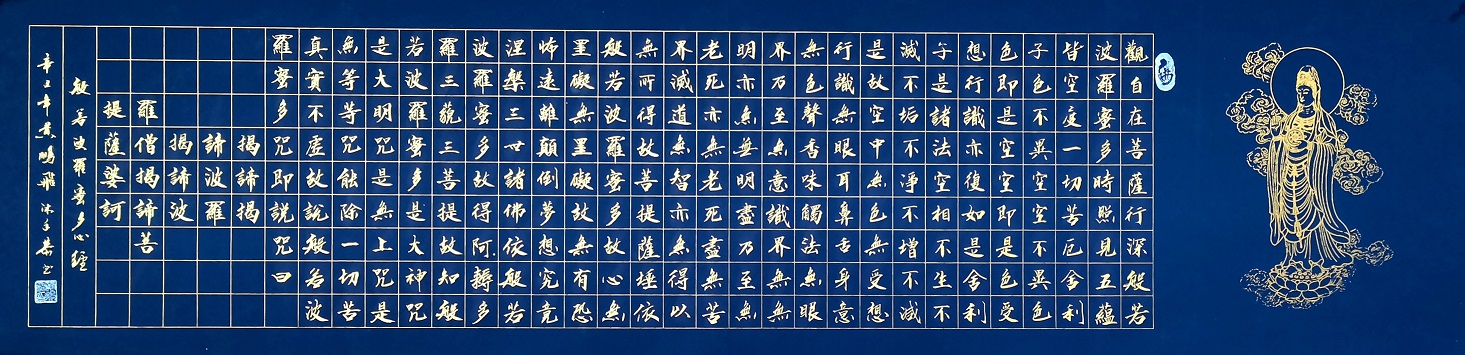 觀自在菩薩行深般若
波羅蜜多時照見五蘊
皆空度一切苦厄舍利
子色不異空空不異色
色即是空空即是色受
想行識亦復如是舍利
子是諸法空相不生不
滅不垢不淨不增不減
是故空中無色無受想
行識無眼耳鼻舌身意
無色聲香味觸法無眼
界乃至無意識界無無
明亦無無明盡乃至無
老死亦無老死盡無苦
集滅道無智亦無得以
無所得故菩提薩埵依
般若波羅蜜多故心無
罣礙無罣礙故無有恐
怖遠離顛倒夢想究竟
涅槃三世諸佛依般若
波羅蜜多故得阿耨多
羅三藐三菩提故知般
若波羅蜜多是大神咒
是大明咒是無上咒是
無等等咒能除一切苦
真實不虛故說般若波
羅蜜多咒即說咒曰
揭諦揭
諦波羅
揭諦波
羅僧揭諦菩
提薩婆訶
般若波羅蜜多心經
辛丑年景鵬飛沐手恭书